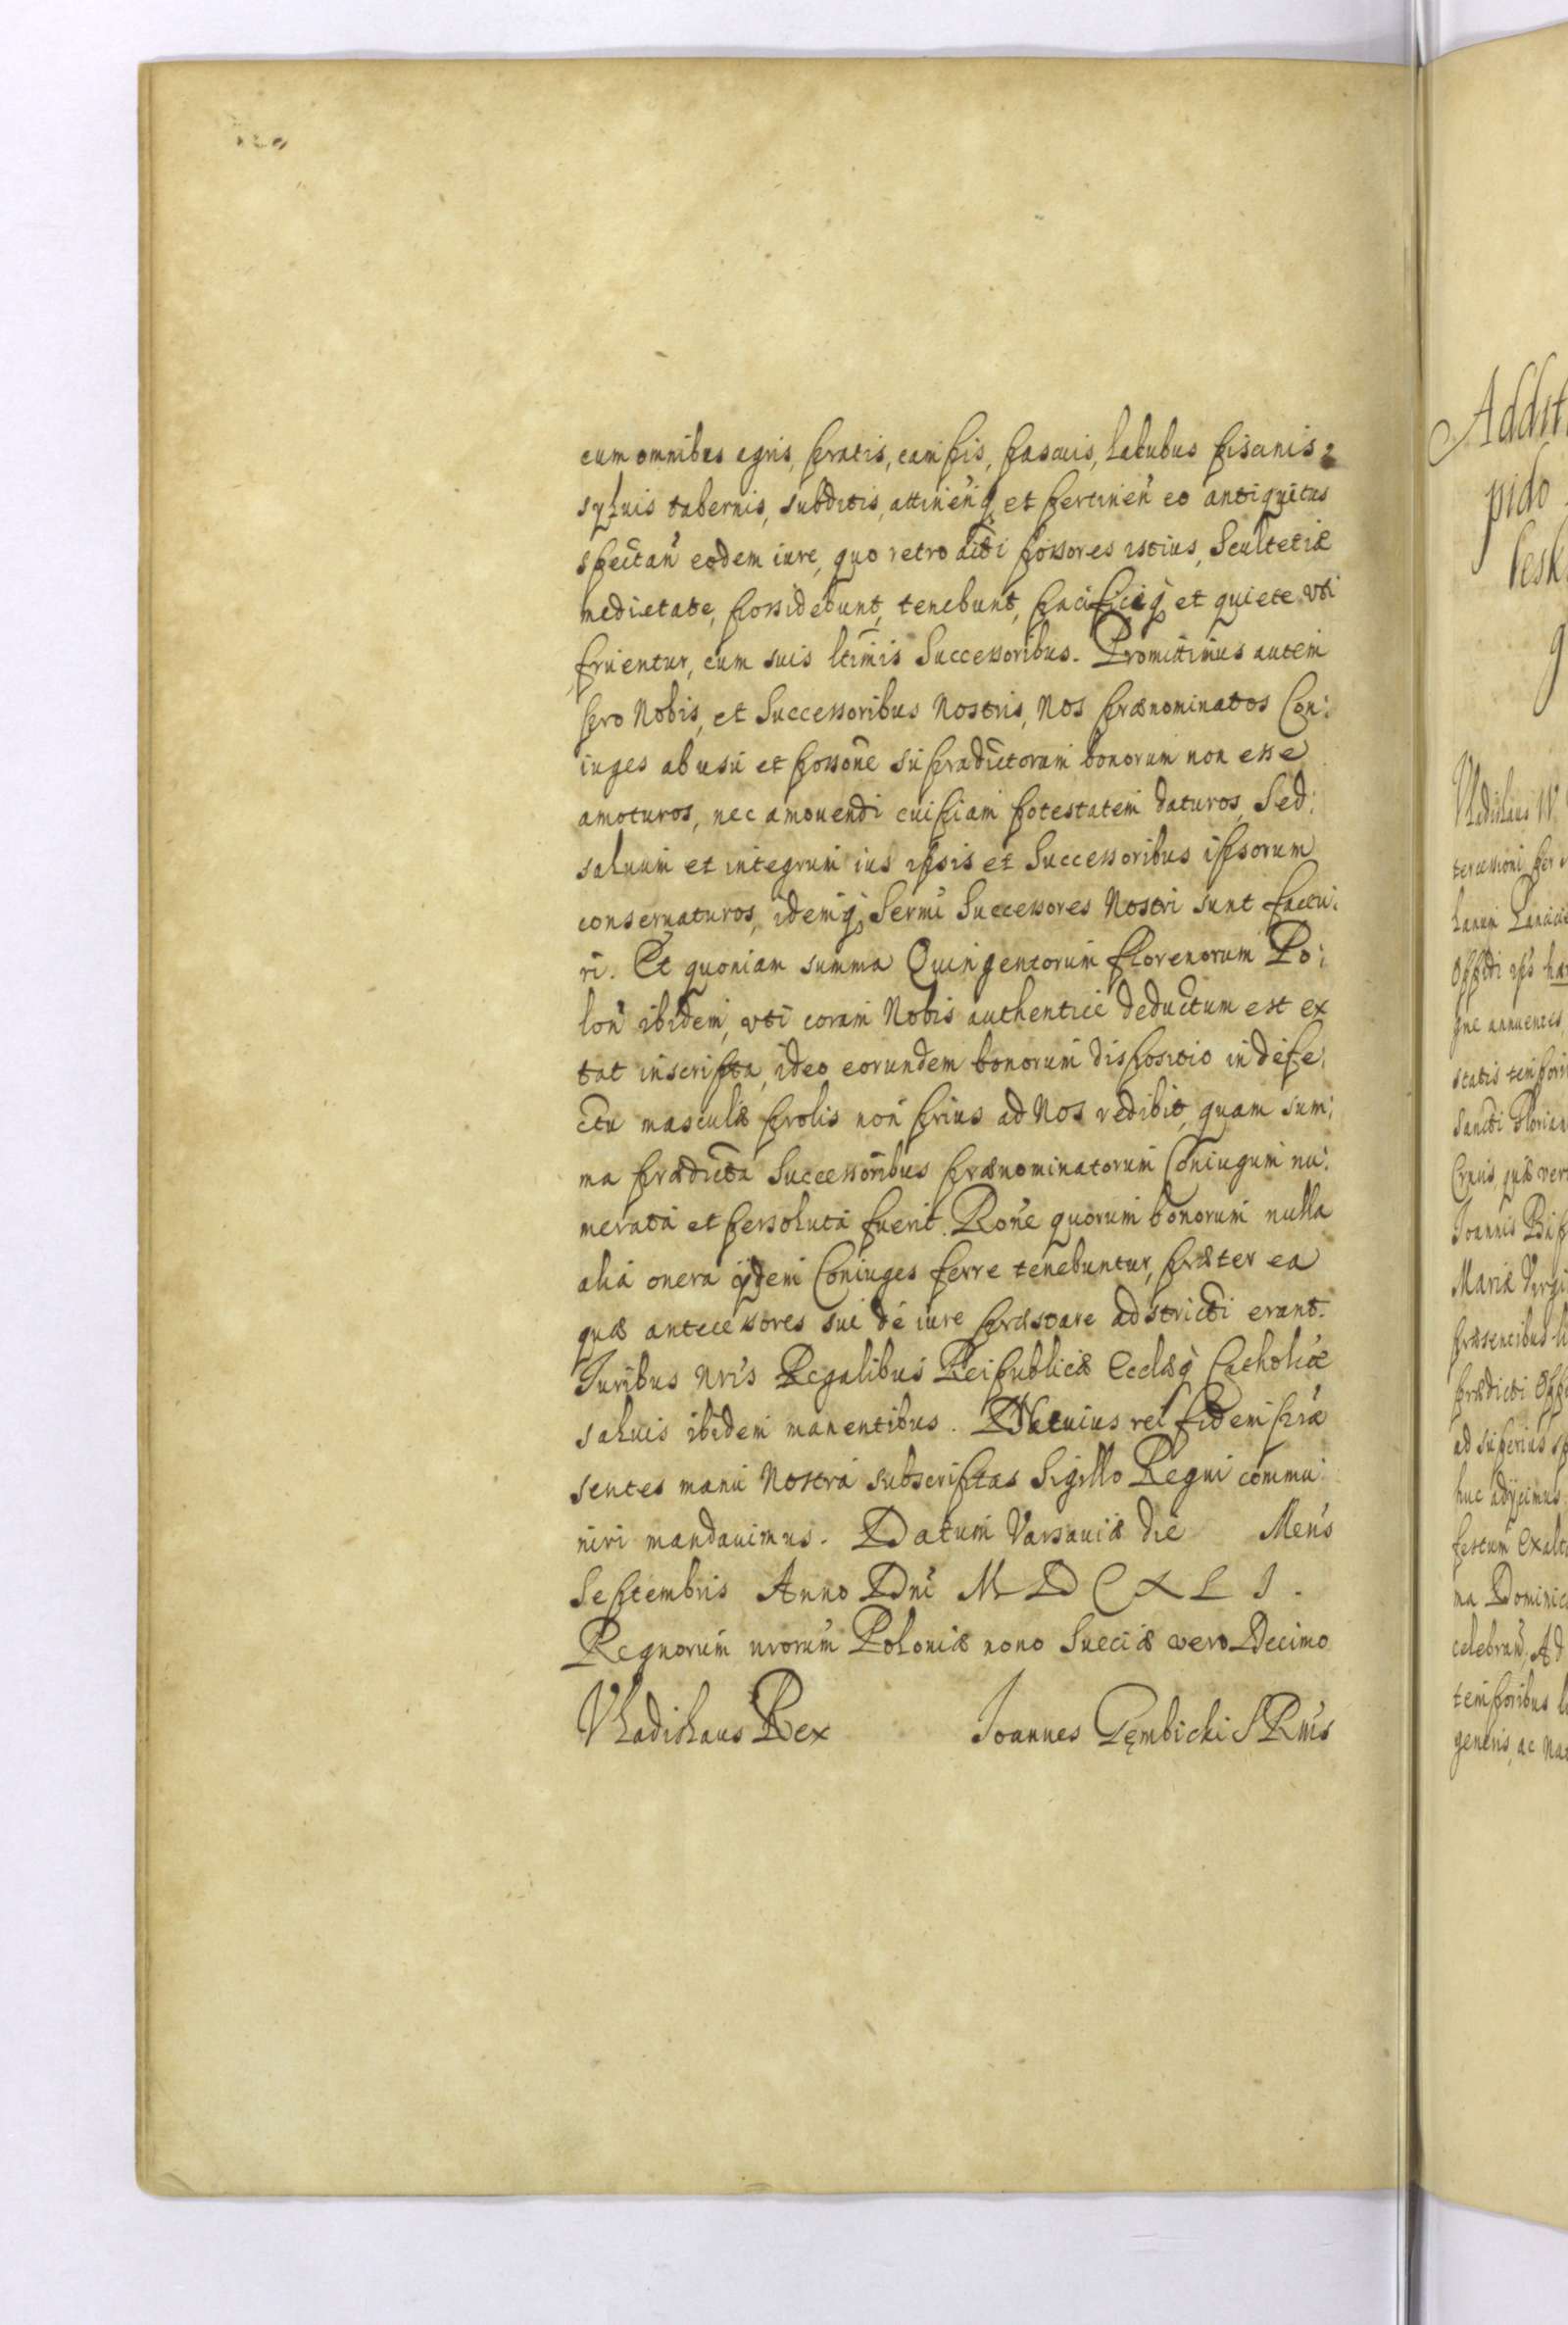 cum omnibus agris, pratis, campis, pascuis, lacubus piscinis,
syluis tabernis, subditis, attinen̄q et pertinen̄ eo antiquitus
spectan̄ eodem iure, quo retro dicti possores istius, Scultetiæ
medietate, possidebunt, tenebunt, pacificeq̷ et quiete vti
fruentur, cum suis ltimis Successoribus. Promittimus autem
pro Nobis, et Successoribus Nostris, Nos prænominatos Con:
iuges ab usu et possone supradictorum bonorum non esse
amoturos, nec amouendi cuipiam potestatem daturos, Sed:
saluum et integrum ius ipsis et Successoribus ipsorum
conseruaturos, idemq̷ Sermi Successores Nostri sunt factu:
ri. Et quoniam summa Quingentorum florenorum Po:
lon̄ ibidem, vti coram Nobis authentice deductum est ex
tat inscripta, ideo eorundem bonorum dispositio in defe:
ctu masculæ prolis non prius ad Nos redibit, quam sum:
ma prædicta Successoribus prænominatorum Coniugum nu:
merata et persoluta fuerit. Rone quorum bonorum nulla
alia onera ijdem Coniuges ferre tenebuntur, præter ea
quæ antecessores sui de iure præstare adstricti erant.
Iuribus nris Regalibus Reipublicæ Ecclæq̷ Catholicæ
saluis ibidem manentibus. In cuius rei fidem præ
sentes manu Nostra subscriptas Sigillo Regni commu:
niri mandauimus. Datum Varsauiæ die Mens
Septembris Anno Dni M D C X L I.
Regnorum nrorum Poloniæ nono Sueciæ vero Decimo
Vladislaus Rex Joannes Gębicki S R Mis
Addit
pido
lesk
g
Vladislaus IV
tercessioni per
Sancti Florian
Crucis, quæ ver
Joannis Bap
Mariæ Virgi
præsentibus li
prædicti Opp
ad superius sp
huc adijcimus
festum Exalt
ma Dominic
celebran̄, Ad
temporibus
generis, ac